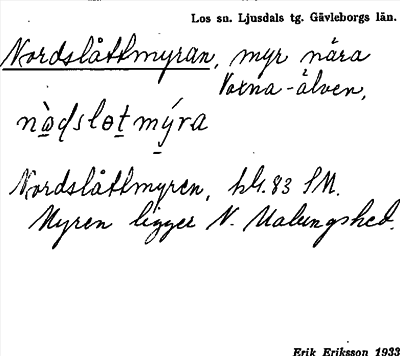 Los sn. Ljusdals tg. Gävleborgs län.
Nordslåttmyran, myr nära
Voxna-älven,
Nordslåttmyren, bl. 83 SM.
Myren ligger N. Malungshed.
Erik Eriksson 1933